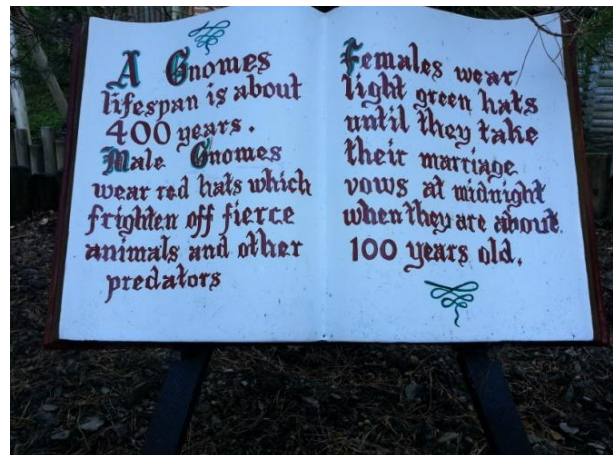 A Gnomes
lifespan is about
400 years.
Male Gnomes
wear red hats which
frighten off fierce
animals and other
predators
Females wear
light green hats
until they take
their marriage
vows at midnight
when they are about
100 years old.